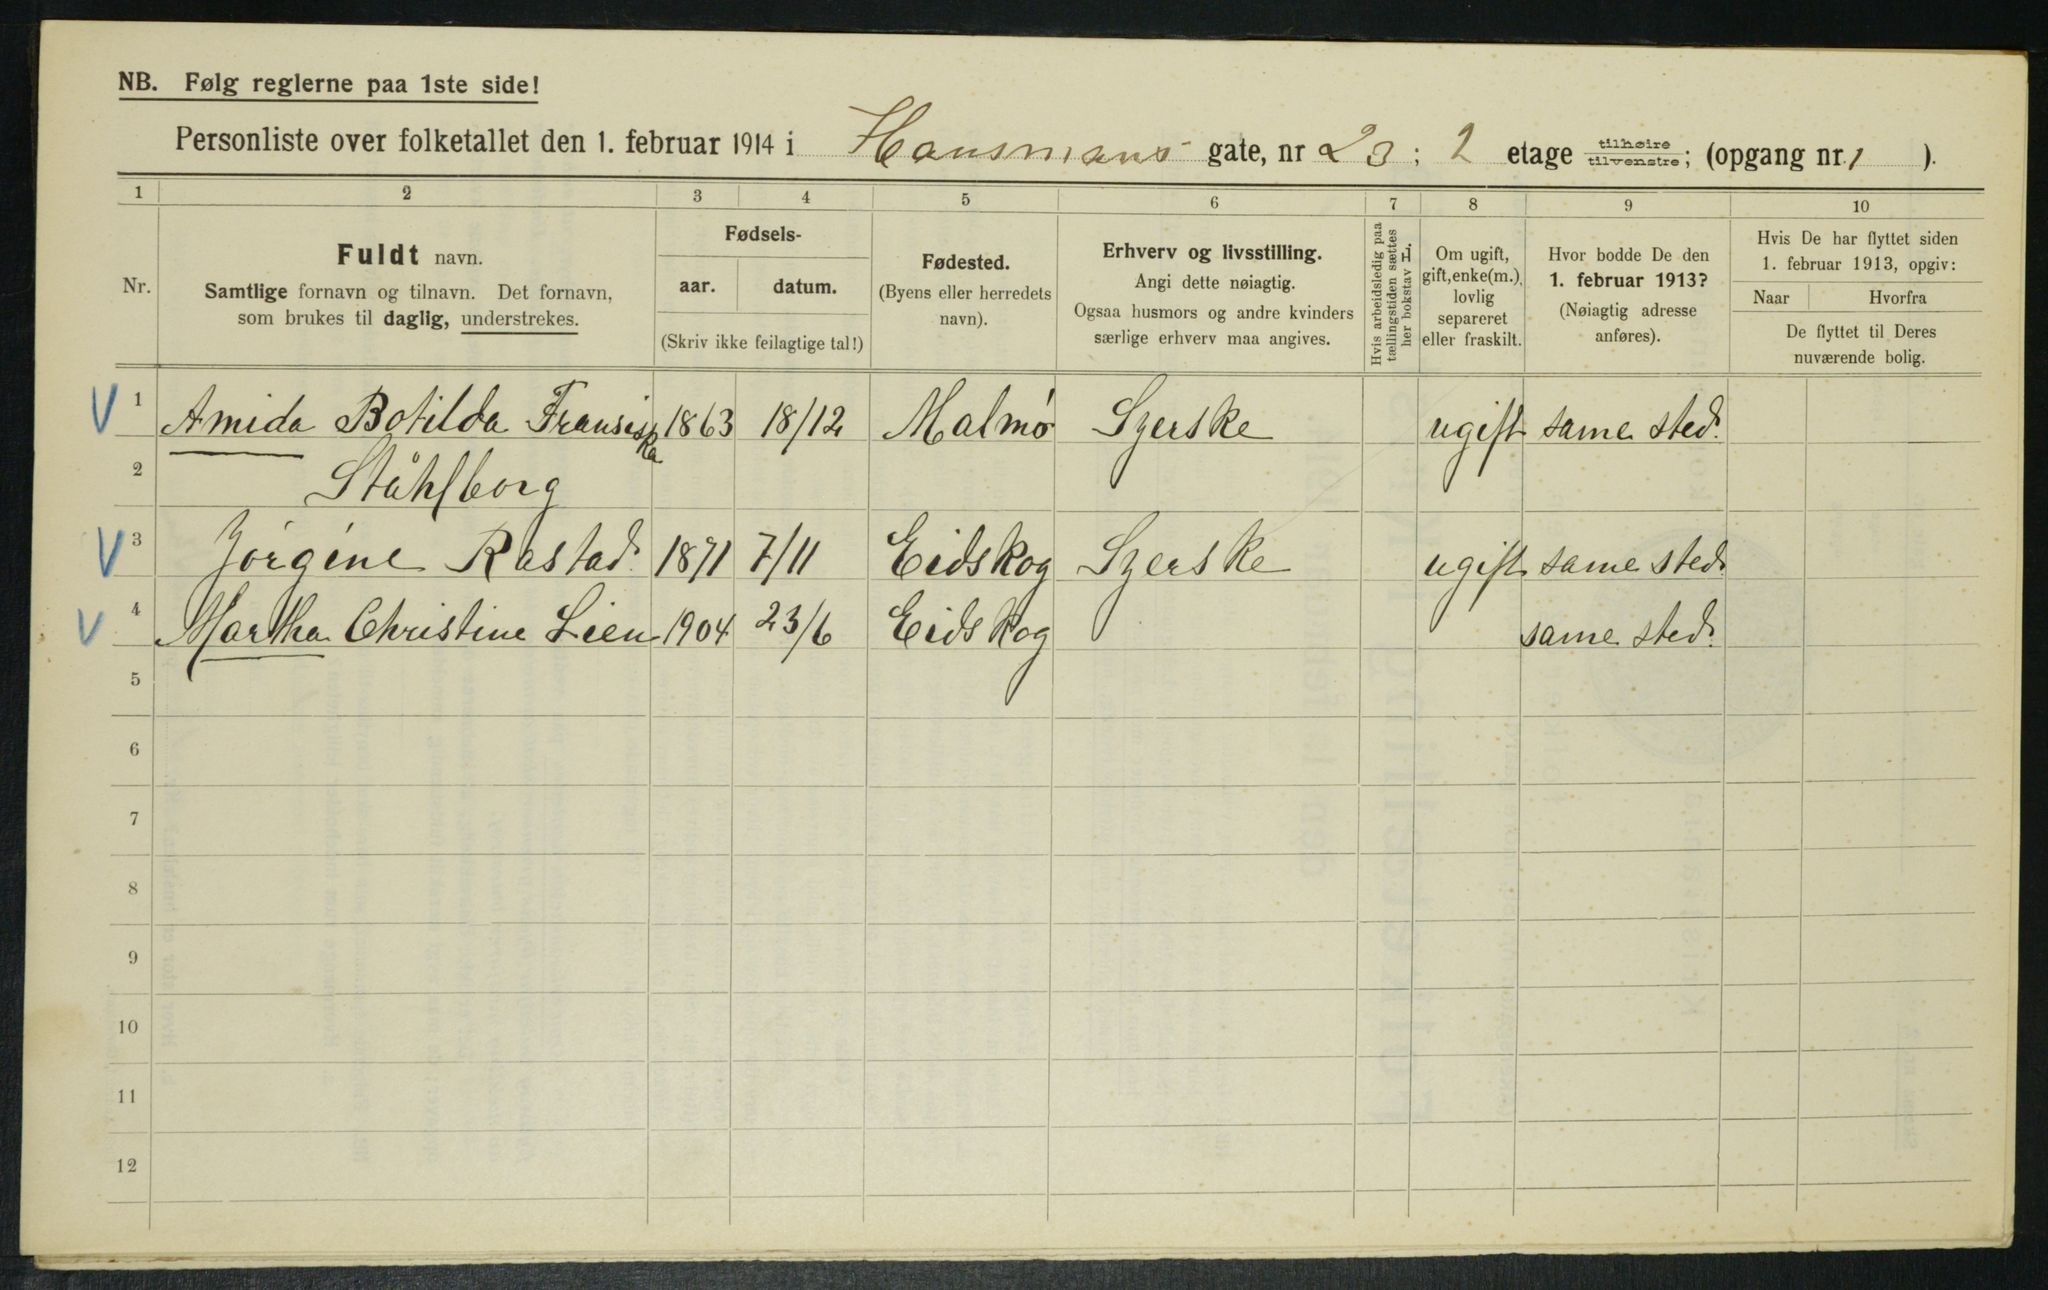 NB. Følg reglerne paa 1ste side!
Personliste over folketallet den 1. februar 1914 i Hausmans gate, nr 23 ; 2 etage tilhøire tilvenstre; (opgang nr. 1 ).
1 2 3 4 5 6 7 8 9 10
Nr.
Fuldt navn.
Samtlige fornavn og tilnavn. Det fornavn,
som brukes til daglig, understrekes.
Fødsels-
aar. datum.
(Skriv ikke feilagtige tal!)
Fødested.
(Byens eller herredets
navn).
Erhverv og livsstilling.
Angi dette nøiagtig.
Ogsaa husmors og andre kvinders
særlige erhverv maa angives.
Hvis arbeidsledig paa
tællingstiden sættes
her bokstav L.
Om ugift,
gift, enke(m.),
lovlig
separeret
eller fraskilt.
Hvor bodde De den
1. februar 1913?
(Nøiagtig adresse
anføres).
Hvis De har flyttet siden
1. februar 1913, opgiv:
Naar Hvorfra
De flyttet til Deres
nuværende bolig.
1 Amida Botilda Fransiska 1863 18/12 Malmø Syerske ugift same sted.
2 Ståhlborg
3 Jørgine Rastad 1871 7/11 Eidskog Syerske ugift same sted.
4 Martha Christine Lien 1904 23/6 Eidskog same sted.
5
6
7
8
9
10
11
12